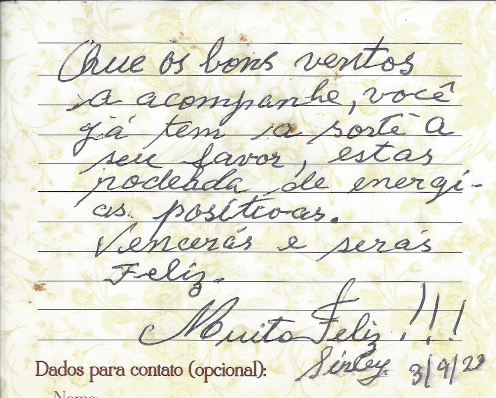 Que os bons ventos
a acompanhe, você
já tem a sorte a
seu favor, estas
rodeada de energi-
as positivas.
Vencerás e serás
Feliz.
Muito Feliz!!!
Sirley 3/9/23
Dados para contato (opcional):
Nome: